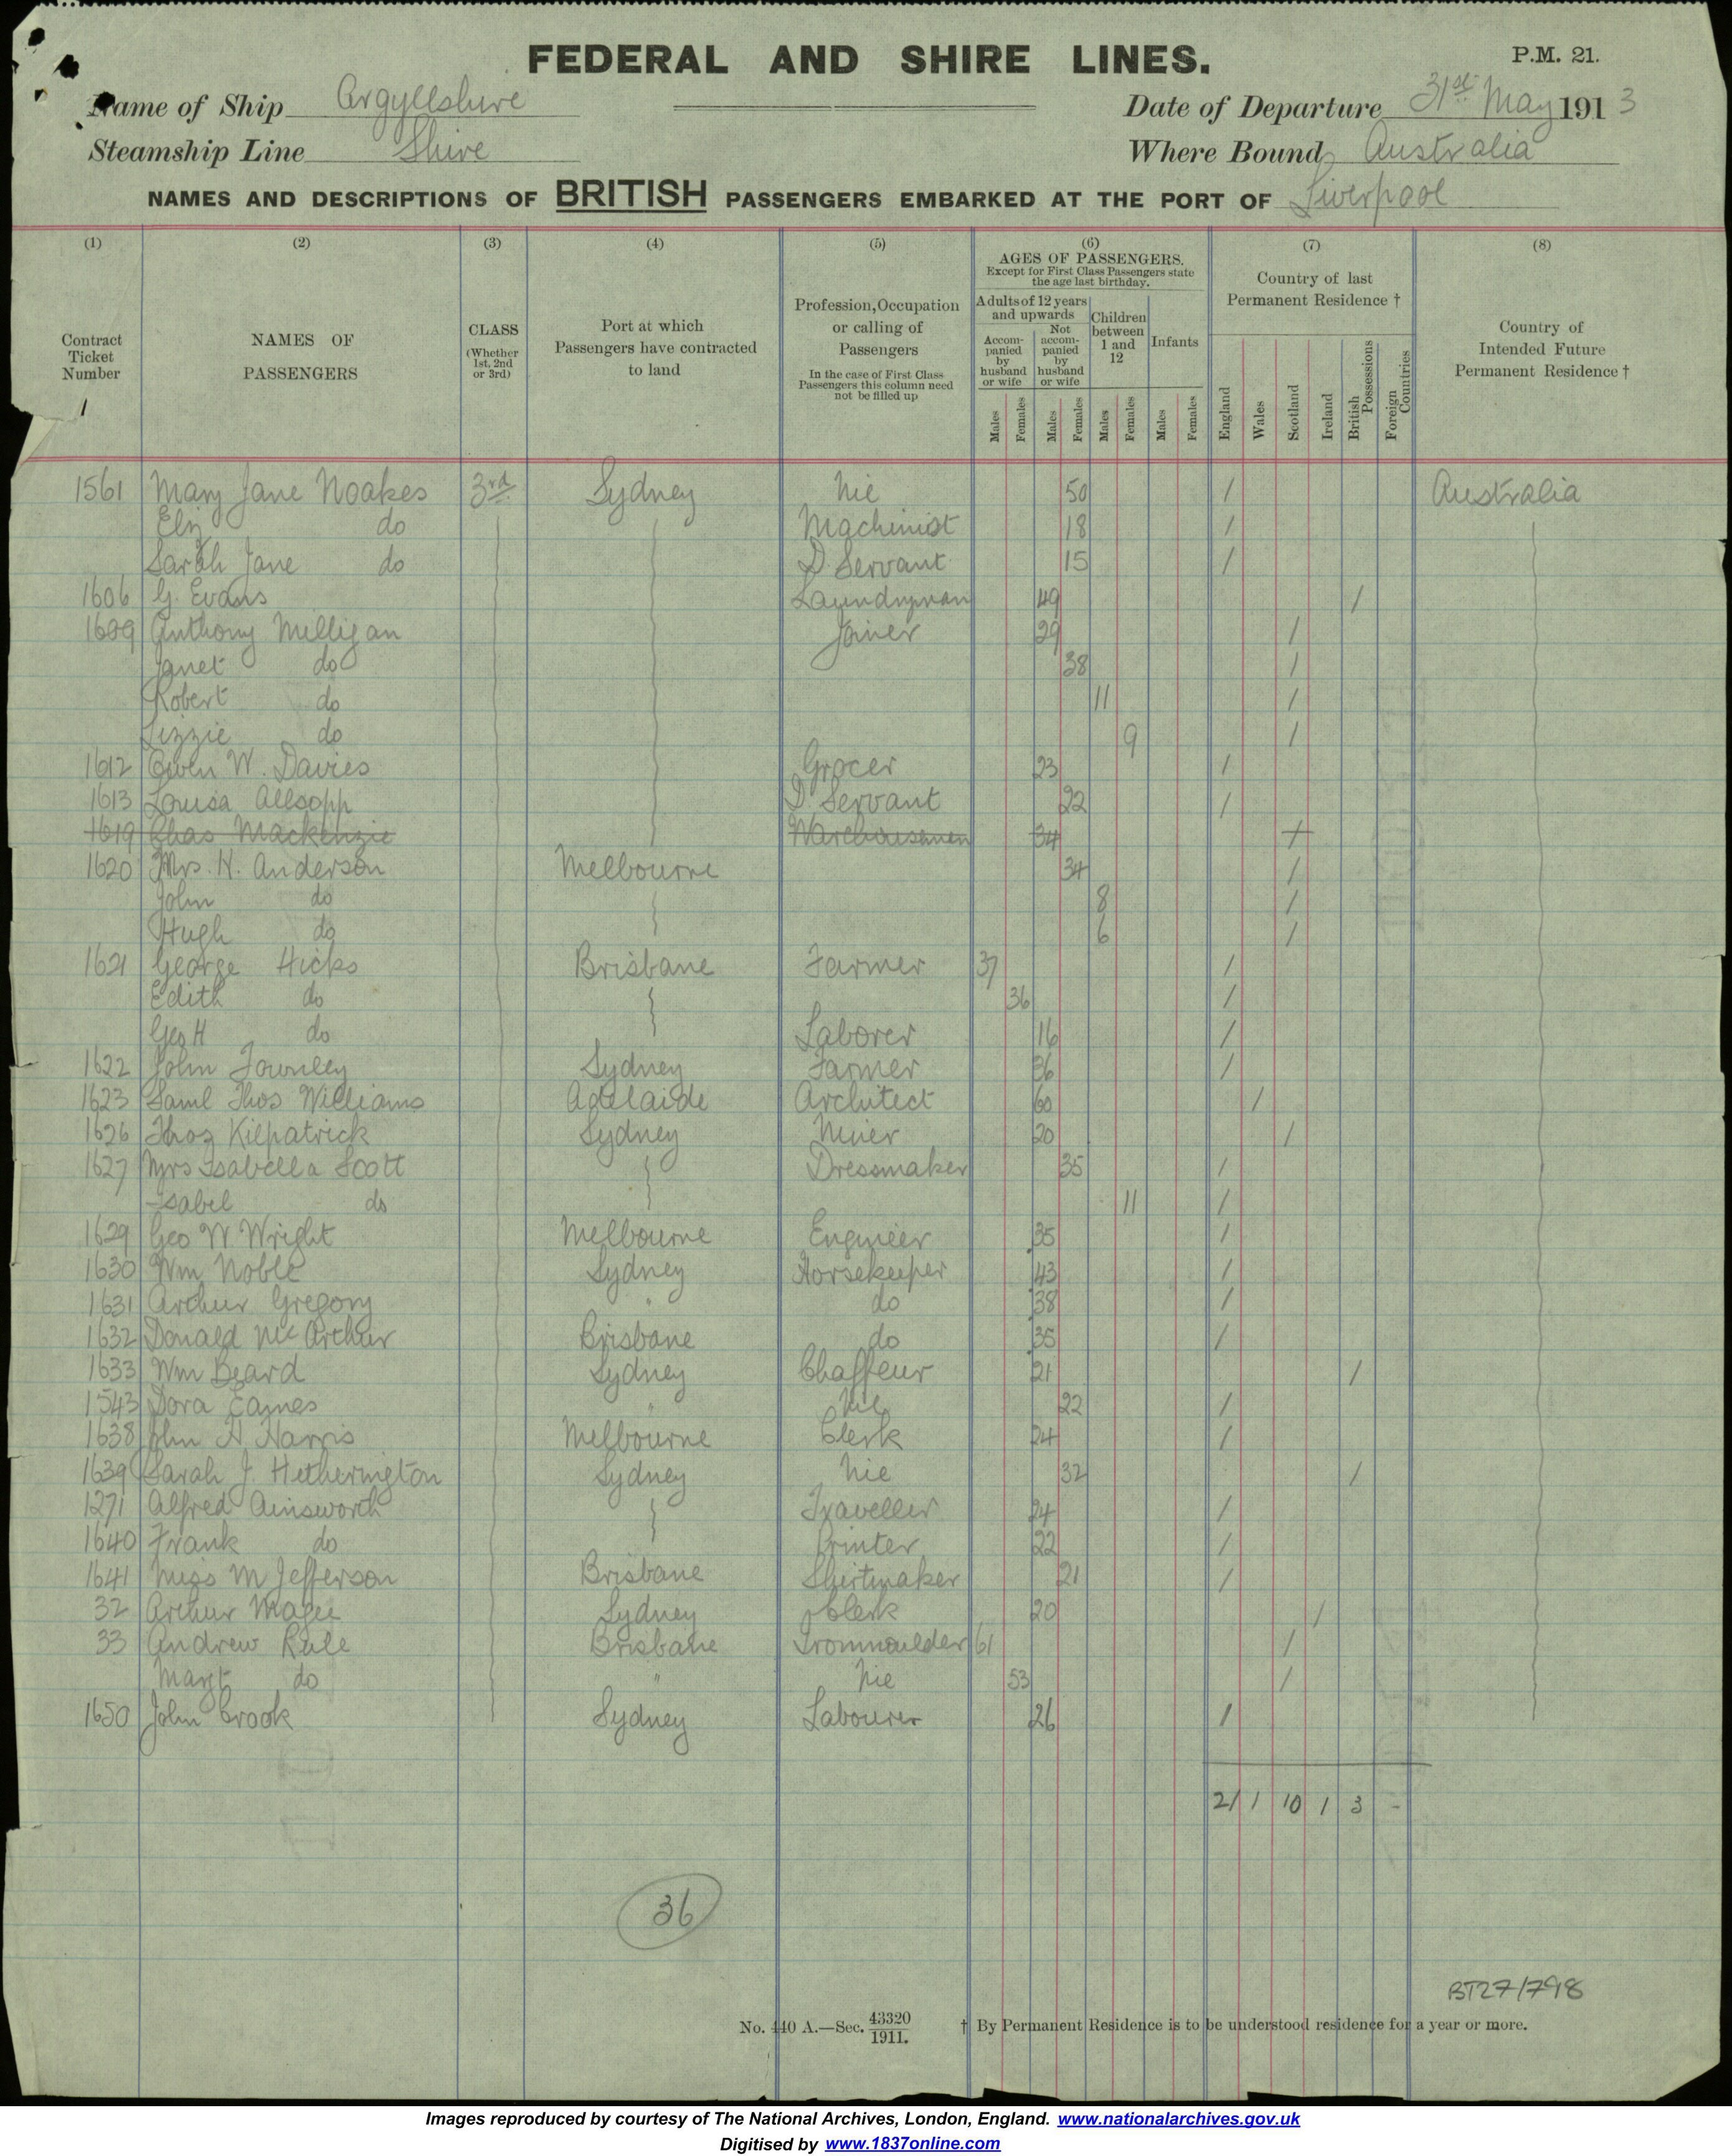 FEDERAL AND SHIRE LINES.
P.M. 21.
Name of Ship Argyllshire
Date of Departure 31st May 1913
Steamship Line Shire
Where Bound Australia
NAMES AND DESCRIPTIONS OF BRITISH PASSENGERS EMBARKED AT THE PORT OF Liverpool
(1) (2) (3) (4) (5) (6) (7) (8)
Contract Ticket Number
NAMES OF PASSENGERS
CLASS (Whether 1st, 2nd or 3rd)
Port at which Passengers have contracted to land
Profession, Occupation or calling of Passengers
In the case of First Class Passengers this column need not be filled up
AGES OF PASSENGERS.
Except for First Class Passengers state the age last birthday.
Adults of 12 years and upwards
Accompanied by husband or wife
Not accompanied by husband or wife
Children between 1 and 12
Infants
Males Females Males Females Males Females Males Females
Country of last Permanent Residence †
England Wales Scotland Ireland British Possessions Foreign Countries
Country of Intended Future Permanent Residence †
1561 Mary Jane Noakes 3rd Sydney Nil 50 / Australia
Eliz do Machinist 18 /
Sarah Jane do D. Servant 15 /
1606 G. Evans Laundryman 49 /
1609 Anthony Milligan Joiner 29 /
Janet do 38 /
Robert do 11 /
Lizzie do 9 /
1612 Owen W. Davies Grocer 23 /
1613 Louisa Allsopp D. Servant 22 /
1619 Chas Mackenzie Warehouseman 34 /
1620 Mrs. H. Anderson Melbourne 34 /
John do 8 /
Hugh do 6 /
1621 George Hicks Brisbane Farmer 37 /
Edith do 36 /
Geo H do Laborer 16 /
1622 John Townley Sydney Farmer 36 /
1623 Saml Thos Williams Adelaide Architect 60 /
1626 Thos Kilpatrick Sydney Miner 20 /
1627 Mrs Isabella Scott Dressmaker 35 /
Isabel do 11 /
1629 Geo W. Wright Melbourne Engineer 35 /
1630 Wm Noble Sydney Horsekeeper 43 /
1631 Arthur Gregory " do 38 /
1632 Donald McArthur Brisbane do 35 /
1633 Wm Beard Sydney Chaffeur 21 /
1543 Dora Eames " Nil 22 /
1638 John H Harris Melbourne Clerk 24 /
1639 Sarah J. Hetherington Sydney Nil 32 /
1271 Alfred Ainsworth Traveller 24 /
1640 Frank do Printer 22 /
1641 Miss M Jefferson Brisbane Shirtmaker 21 /
32 Arthur Magee Sydney Clerk 20 /
33 Andrew Rule Brisbane Ironmoulder 61 /
Margt do " Nil 53 /
1650 John Crook Sydney Labourer 26 /
21 1 10 1 3 -
36
BT27/798
No. 440 A.—Sec. 43320/1911.
† By Permanent Residence is to be understood residence for a year or more.
Images reproduced by courtesy of The National Archives, London, England. www.nationalarchives.gov.uk
Digitised by www.1837online.com